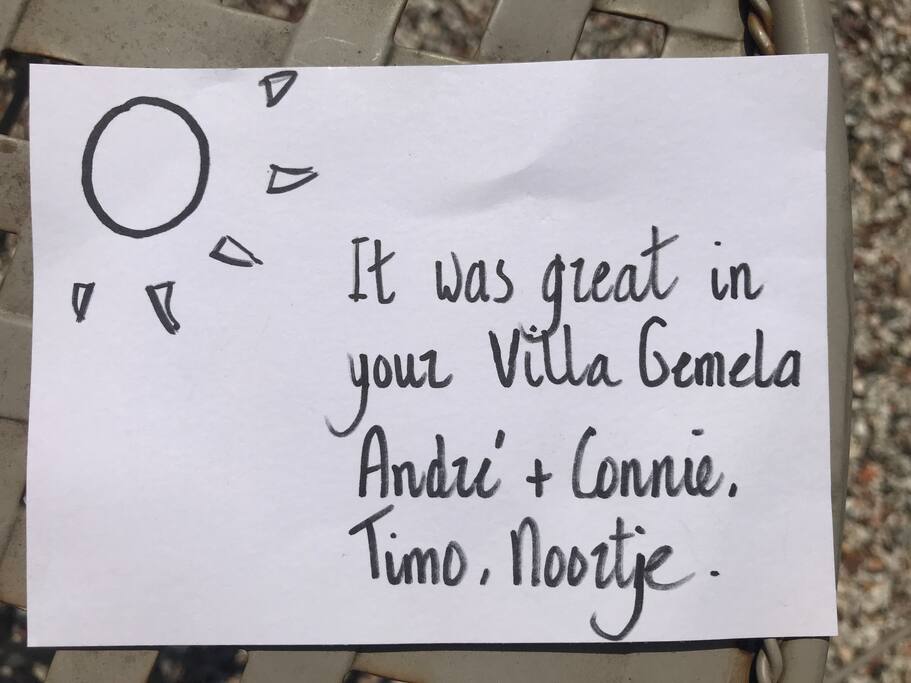 It was great in
your Villa Gemela
André + Connie.
Timo, Noortje.